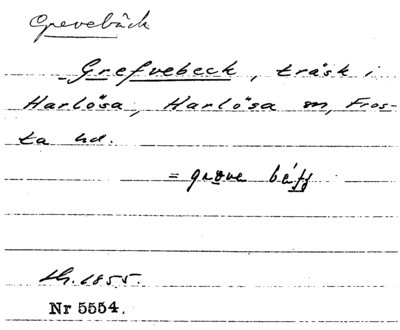 Grevebäck
Grefvebeck, träsk i
Harlösa, Harlösa sn, Fros-
ta hd.
= grove
Lk. 1855.
Nr 5554.